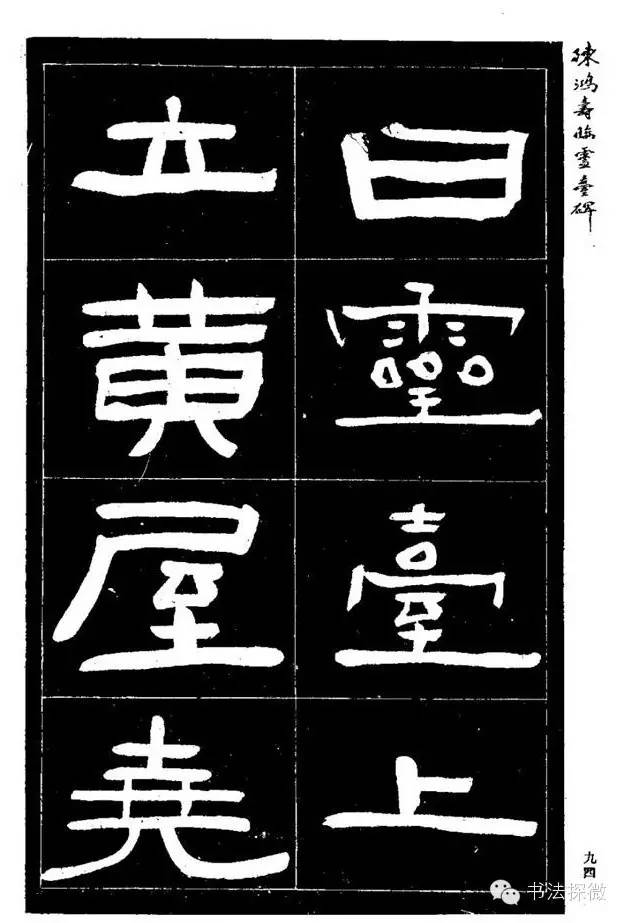 陳鴻壽臨靈臺碑
曰靈臺上
立黄屋堯
九四
书法探微